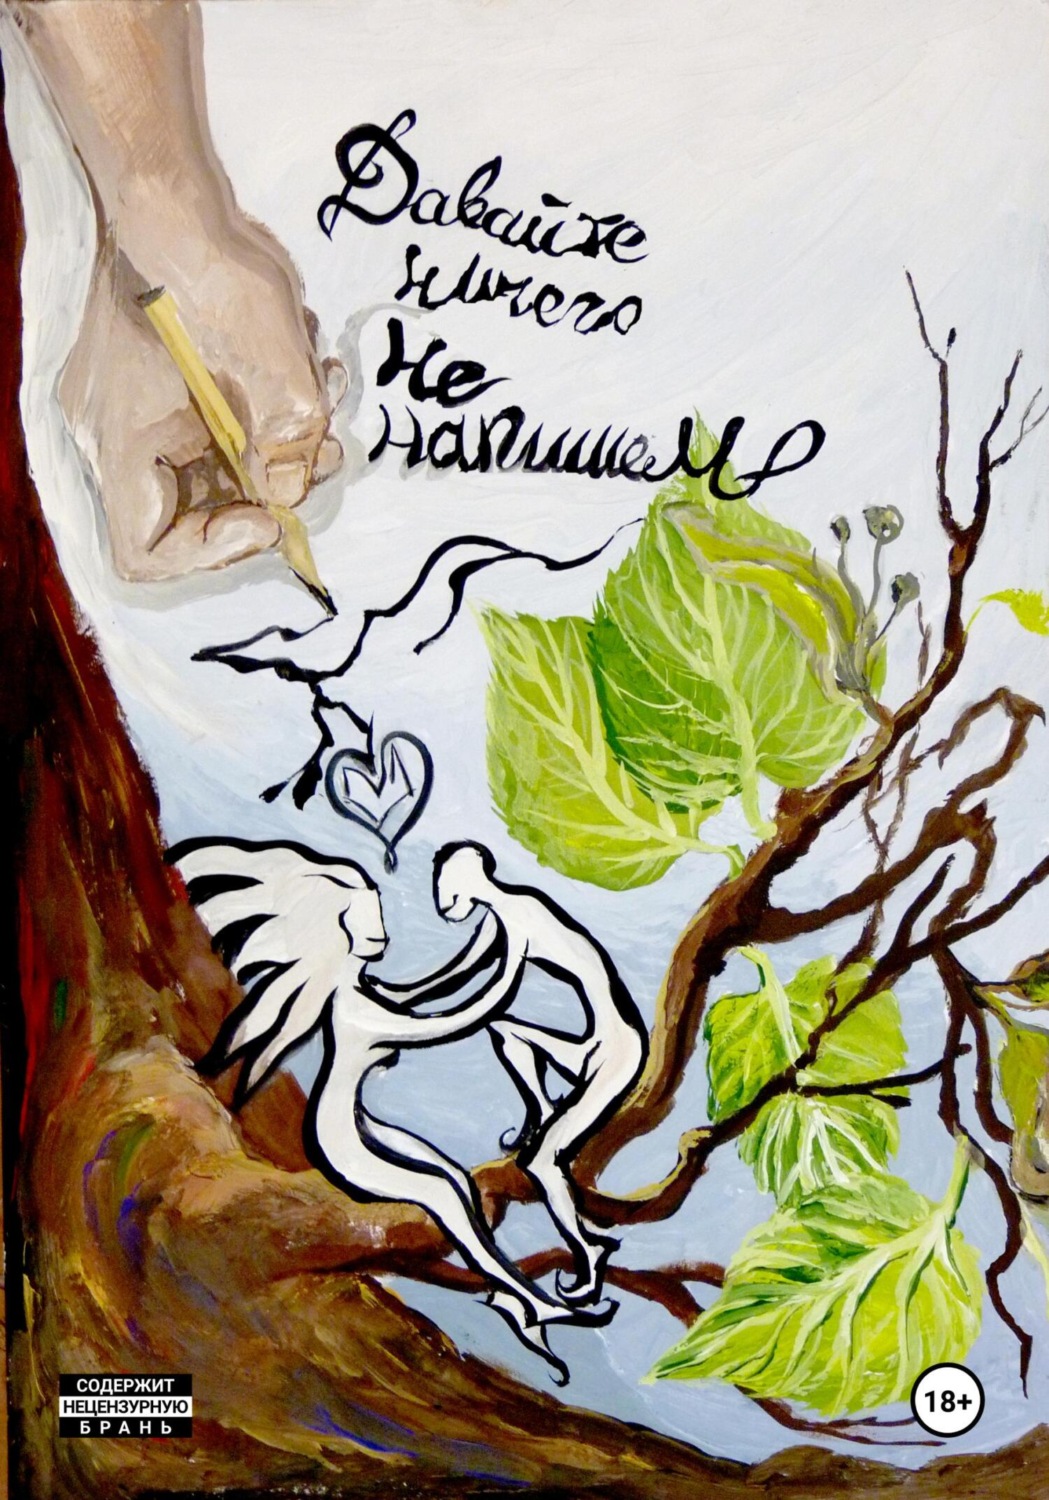 Давайте
ничего
не
напишем
СОДЕРЖИТ
НЕЦЕНЗУРНУЮ
БРАНЬ
18+